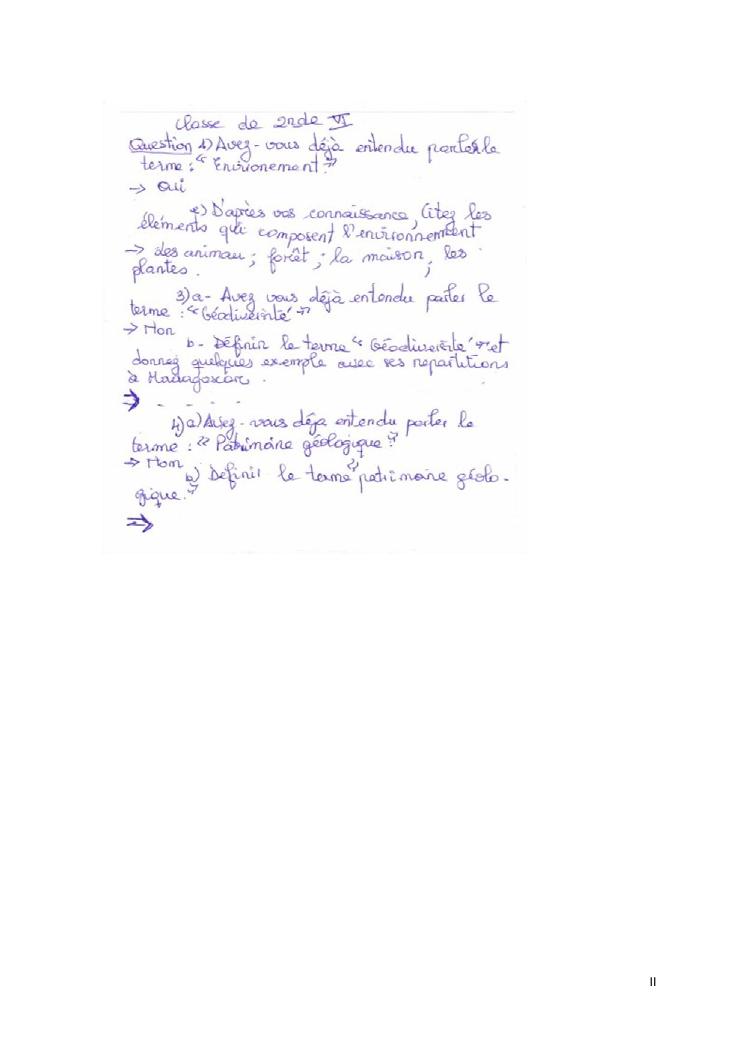 Classe de 2nde VI
Question 1) Avez-vous déjà entendu parler le
terme : "Environement"
→ Oui
2) D'après vos connaissance, Citez les
éléments qui composent l'environnement
→ des animau ; forêt ; la maison, les
plantes. ;
3) a- Avez vous déjà entendu parler le
terme : "Géodiversité"
→ Non
b- Définir le terme "Géodiversité" et
donnez quelques exemple avec ses repartitions
à Madagascar.
⇒ - - - -
4) a) Avez-vous déja entendu parler le
terme : "Patrimoine géologique"
→ Non
b) Définir le terme "patrimoine géolo-
gique."
⇒
II